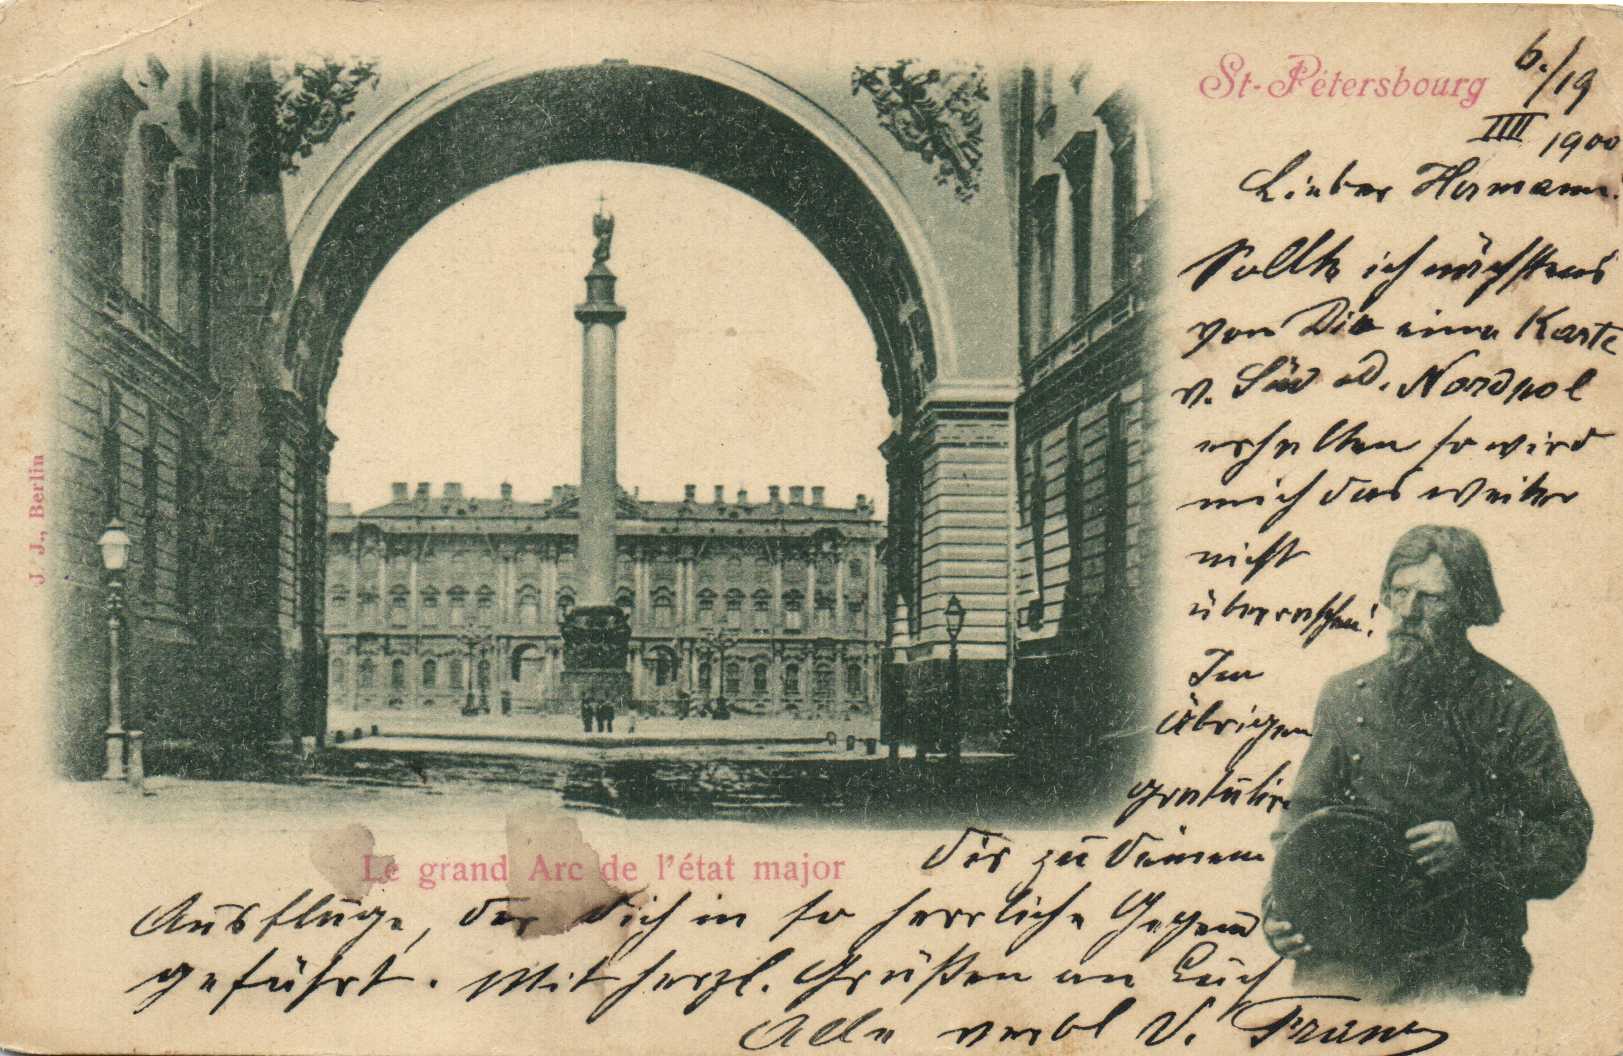 St-Pétersbourg
6./19
IIII 1900
Lieber Hermann!
Sollte ich nächstens
von Dir eine Karte
v. Süd od. Nordpol
erhalten so wird
mich das weiter
nicht
überraschen!
Im
Übrigen
gratulire
Dir zu Deinem
Ausfluge, der Dich in so herrliche Gegend
geführt. Mit herzl. Grüßen an Euch
Alle verbl D. Franz
Le grand Arc de l'état major
J. J., Berlin